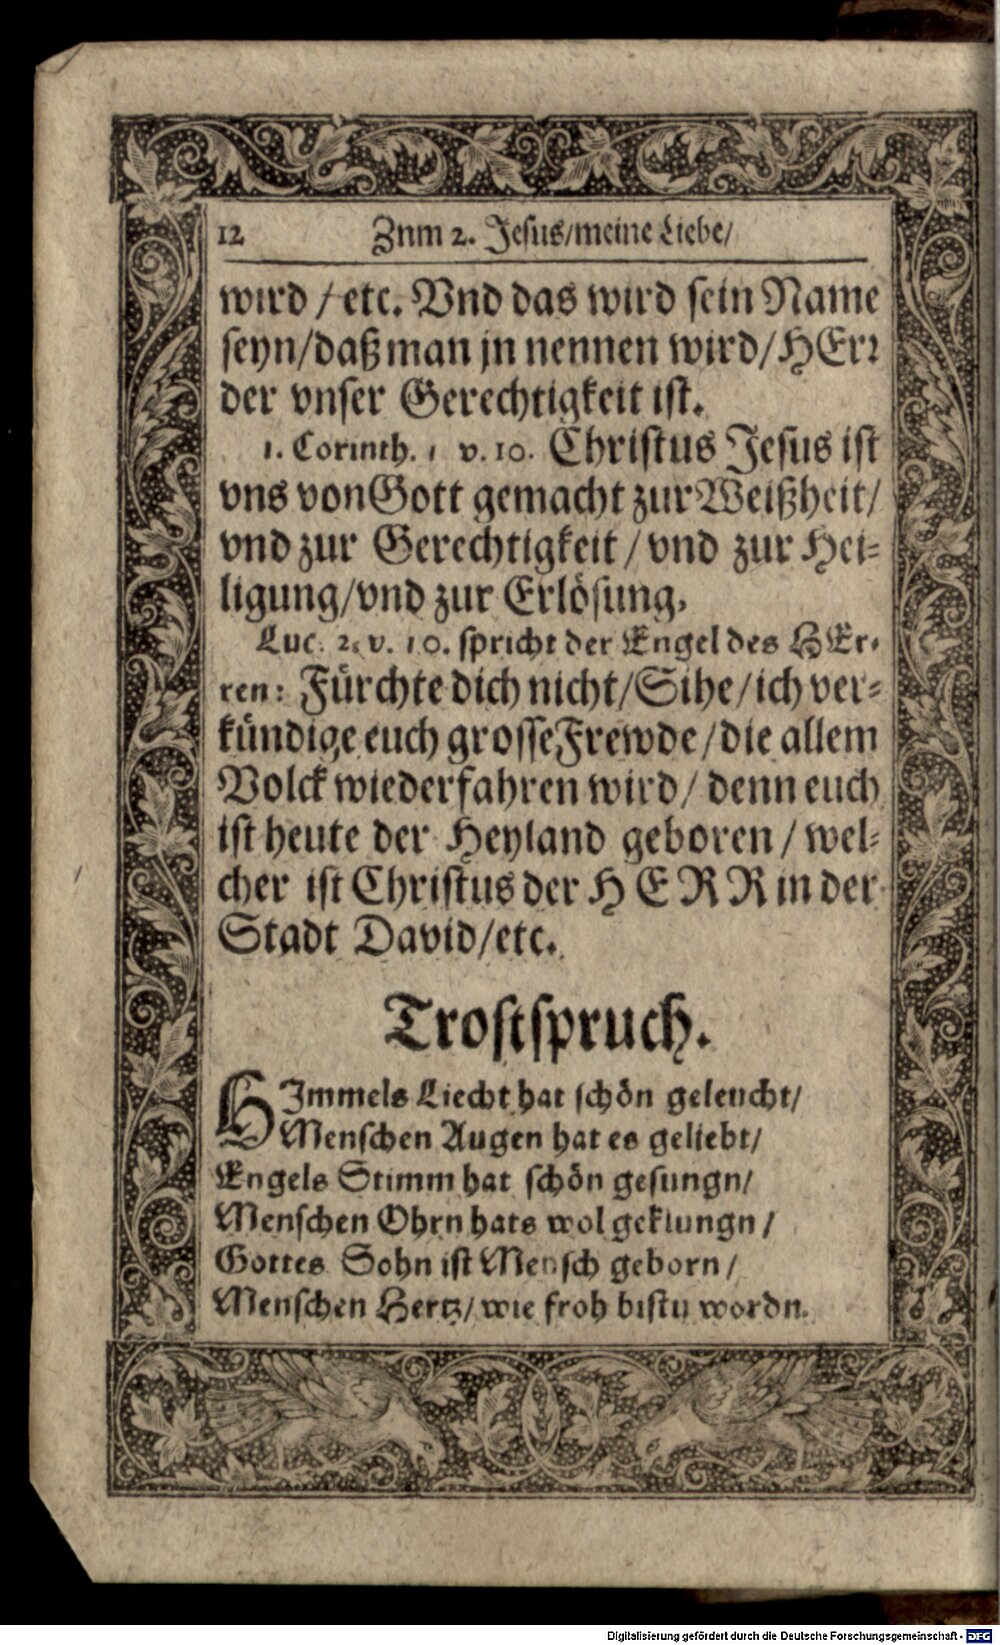 12 Znm 2. Jesus/meine Liebe/
wird / etc. Vnd das wird sein Name
seyn/daß man jn nennen wird/HErr
der vnser Gerechtigkeit ist.
1. Corinth. 1 v. 10. Christus Jesus ist
vns von Gott gemacht zur Weißheit/
vnd zur Gerechtigkeit / vnd zur Hei-
ligung/vnd zur Erlösung.
Luc. 2. v. 10. spricht der Engel des HEr-
ren: Fürchte dich nicht/Sihe/ich ver-
kündige euch grosse Frewde/die allem
Volck wiederfahren wird/ denn euch
ist heute der Heyland geboren / wel-
cher ist Christus der HERR in der
Stadt David/etc.
Trostspruch.
HImmels Liecht hat schön geleucht/
Menschen Augen hat es geliebt/
Engels Stimm hat schön gesungn/
Menschen Ohrn hats wol geklungn/
Gottes Sohn ist Mensch geborn/
Menschen Hertz/ wie froh bistu wordn.
Digitalisierung gefördert durch die Deutsche Forschungsgemeinschaft - DFG